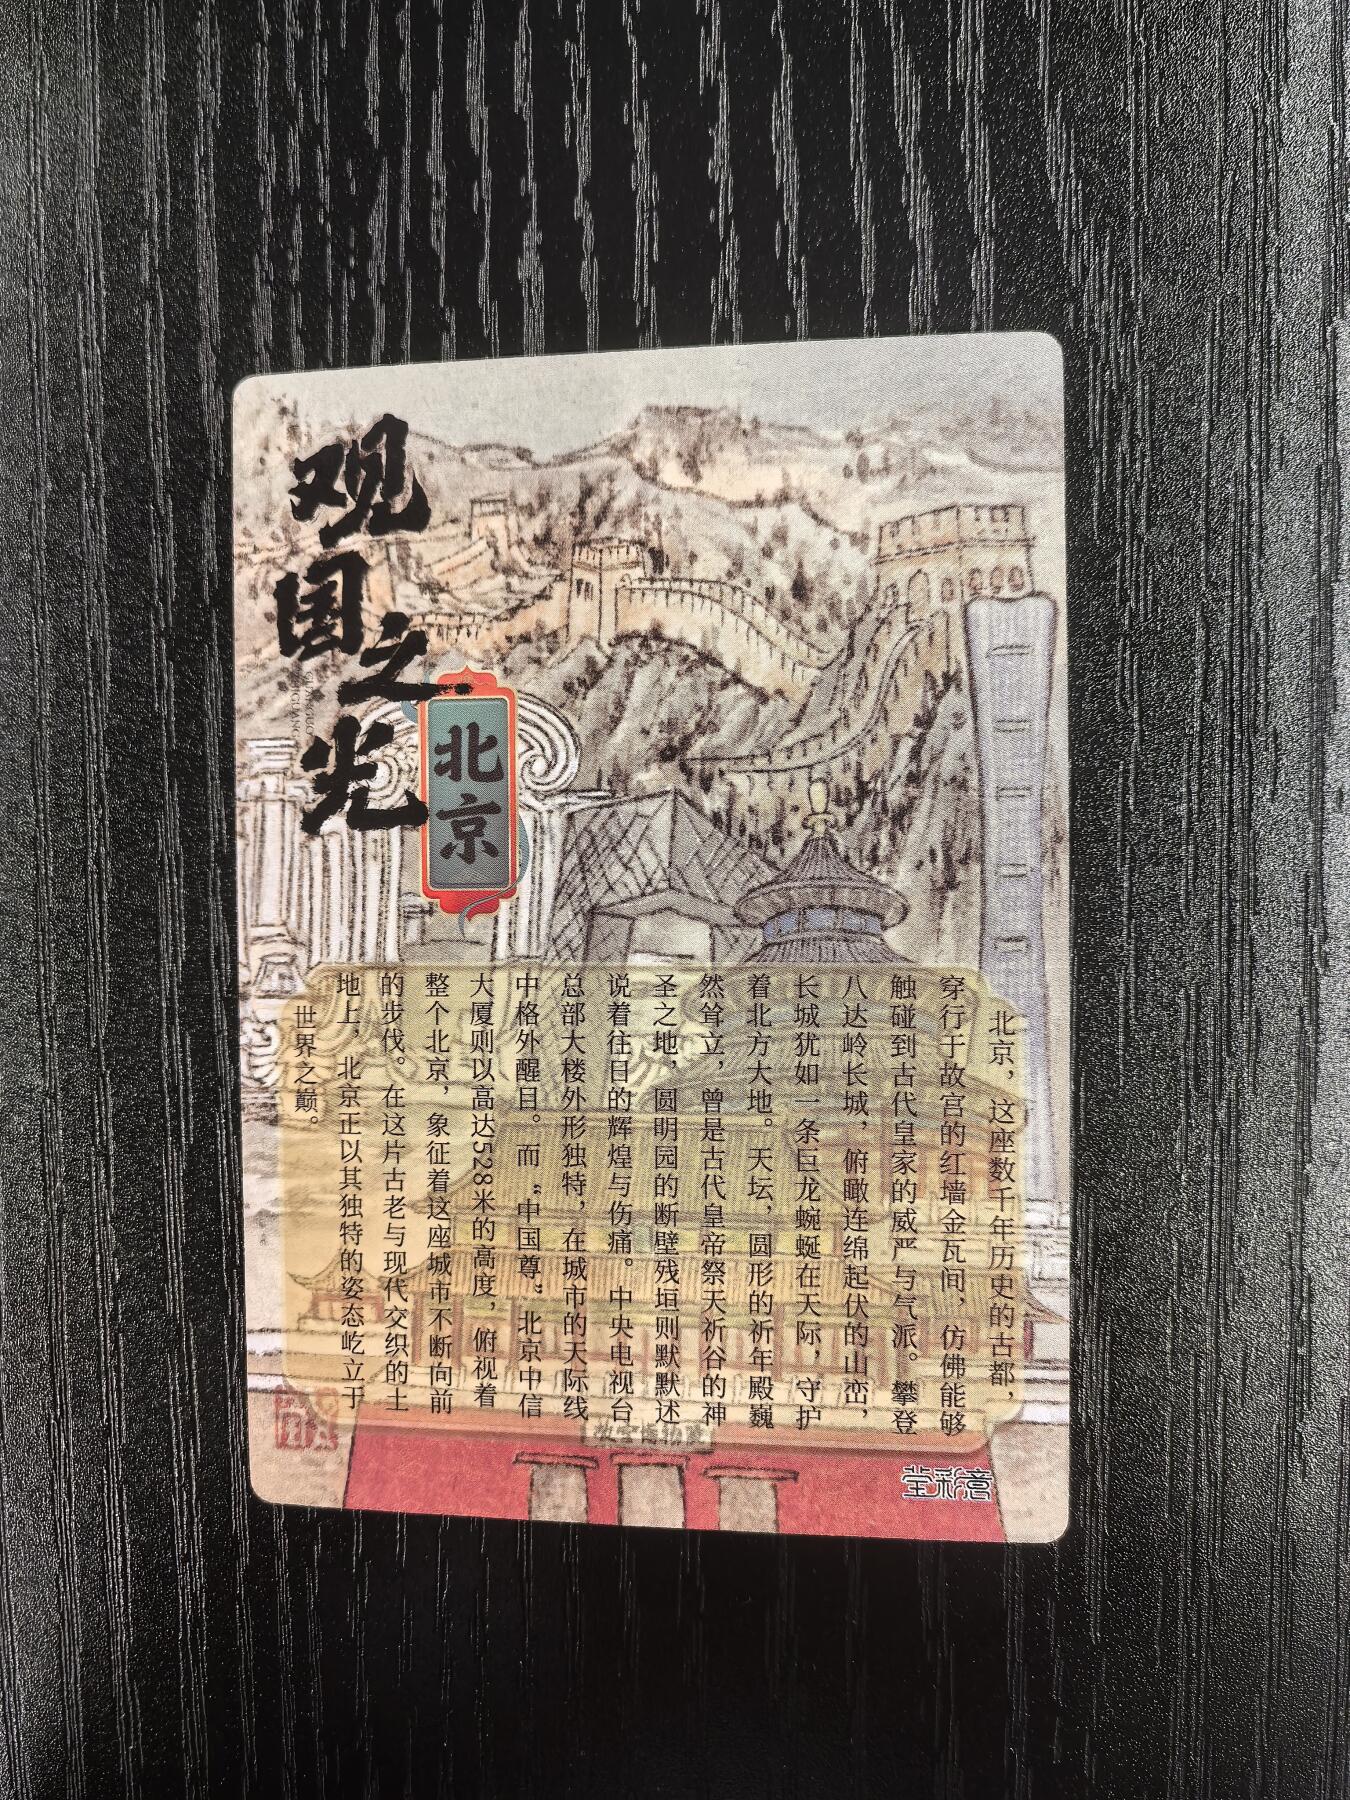 观国之光
北京
北京，这座数千年历史的古都，
穿行于故宫的红墙金瓦间，仿佛能够
触碰到古代皇家的威严与气派。攀登
八达岭长城，俯瞰连绵起伏的山峦，
长城犹如一条巨龙蜿蜒在天际，守护
着北方大地。天坛，圆形的祈年殿巍
然耸立，曾是古代皇帝祭天祈谷的神
圣之地，圆明园的断壁残垣则默默述
说着往日的辉煌与伤痛。中央电视台
总部大楼外形独特，在城市的天际线
中格外醒目。而“中国尊”北京中信
大厦则以高达528米的高度，俯视着
整个北京，象征着这座城市不断向前
的步伐。在这片古老与现代交织的土
地上，北京正以其独特的姿态屹立于
世界之巅。
故宫博物院
莹彩意